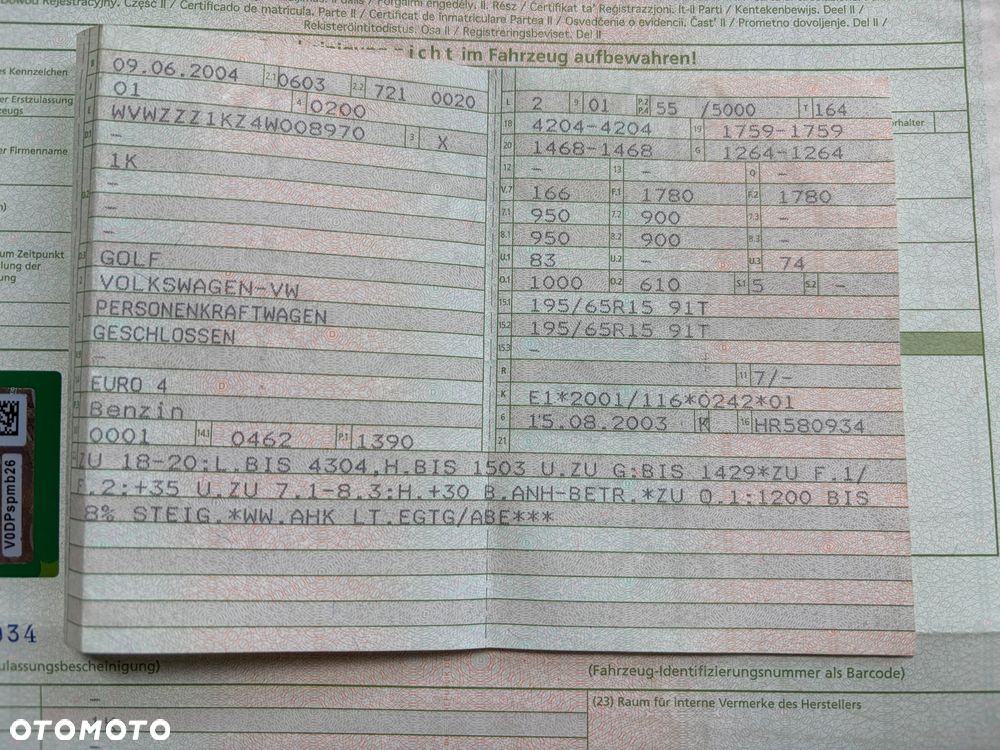 Dowód Rejestracyjny. Część II / Certificado de matrícula. Parte II / Certificat de înmatriculare Partea II / Osvedčenie o evidencii. Časť II / Prometno dovoljenje. Del II /
Rekisteröintitodistus. Osa II / Registreringsbeviset. Del II
icht im Fahrzeug aufbewahren!
es Kennzeichen
er Erstzulassung
zeugs
er Firmenname
um Zeitpunkt
lung der
ung
rhalter
B 09.06.2004 2.1 0603 2.2 721 0020
J 01 4 0200
E WVWZZZ1KZ4W008970 3 X
D.1 –
1K
D.2 –
–
–
D.3 GOLF
2 VOLKSWAGEN-VW
PERSONENKRAFTWAGEN
GESCHLOSSEN
–
EURO 4
Benzin
0001 14.1 0462 P.1 1390
L 2 9 01 P.2 P.4 55 /5000 T 164
18 4204-4204 19 1759-1759
20 1468-1468 G 1264-1264
12 – 13 – Q –
V.7 166 F.1 1780 F.2 1780
7.1 950 7.2 900 7.3 –
8.1 950 8.2 900 8.3 –
U.1 83 U.2 – U.3 74
O.1 1000 O.2 610 S.1 5 S.2 –
15.1 195/65R15 91T
15.2 195/65R15 91T
15.3 –
R 11 7/-
K E1*2001/116*0242*01
6 15.08.2003 K 16 HR580934
21
ZU 18-20:L.BIS 4304,H.BIS 1503 U.ZU G:BIS 1429*ZU F.1/
F.2:+35 U.ZU 7.1-8.3:H.+30 B.ANH-BETR.*ZU O.1:1200 BIS
8% STEIG.*WW.AHK LT.EGTG/ABE***
V0DPspmb26
034
ulassungsbescheinigung)
(Fahrzeug-Identifizierungsnummer als Barcode)
(23) Raum für interne Vermerke des Herstellers
OTOMOTO